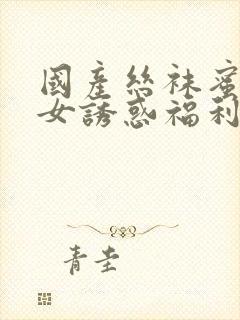 國產絲袜蜜
女誘惑福利
青圭